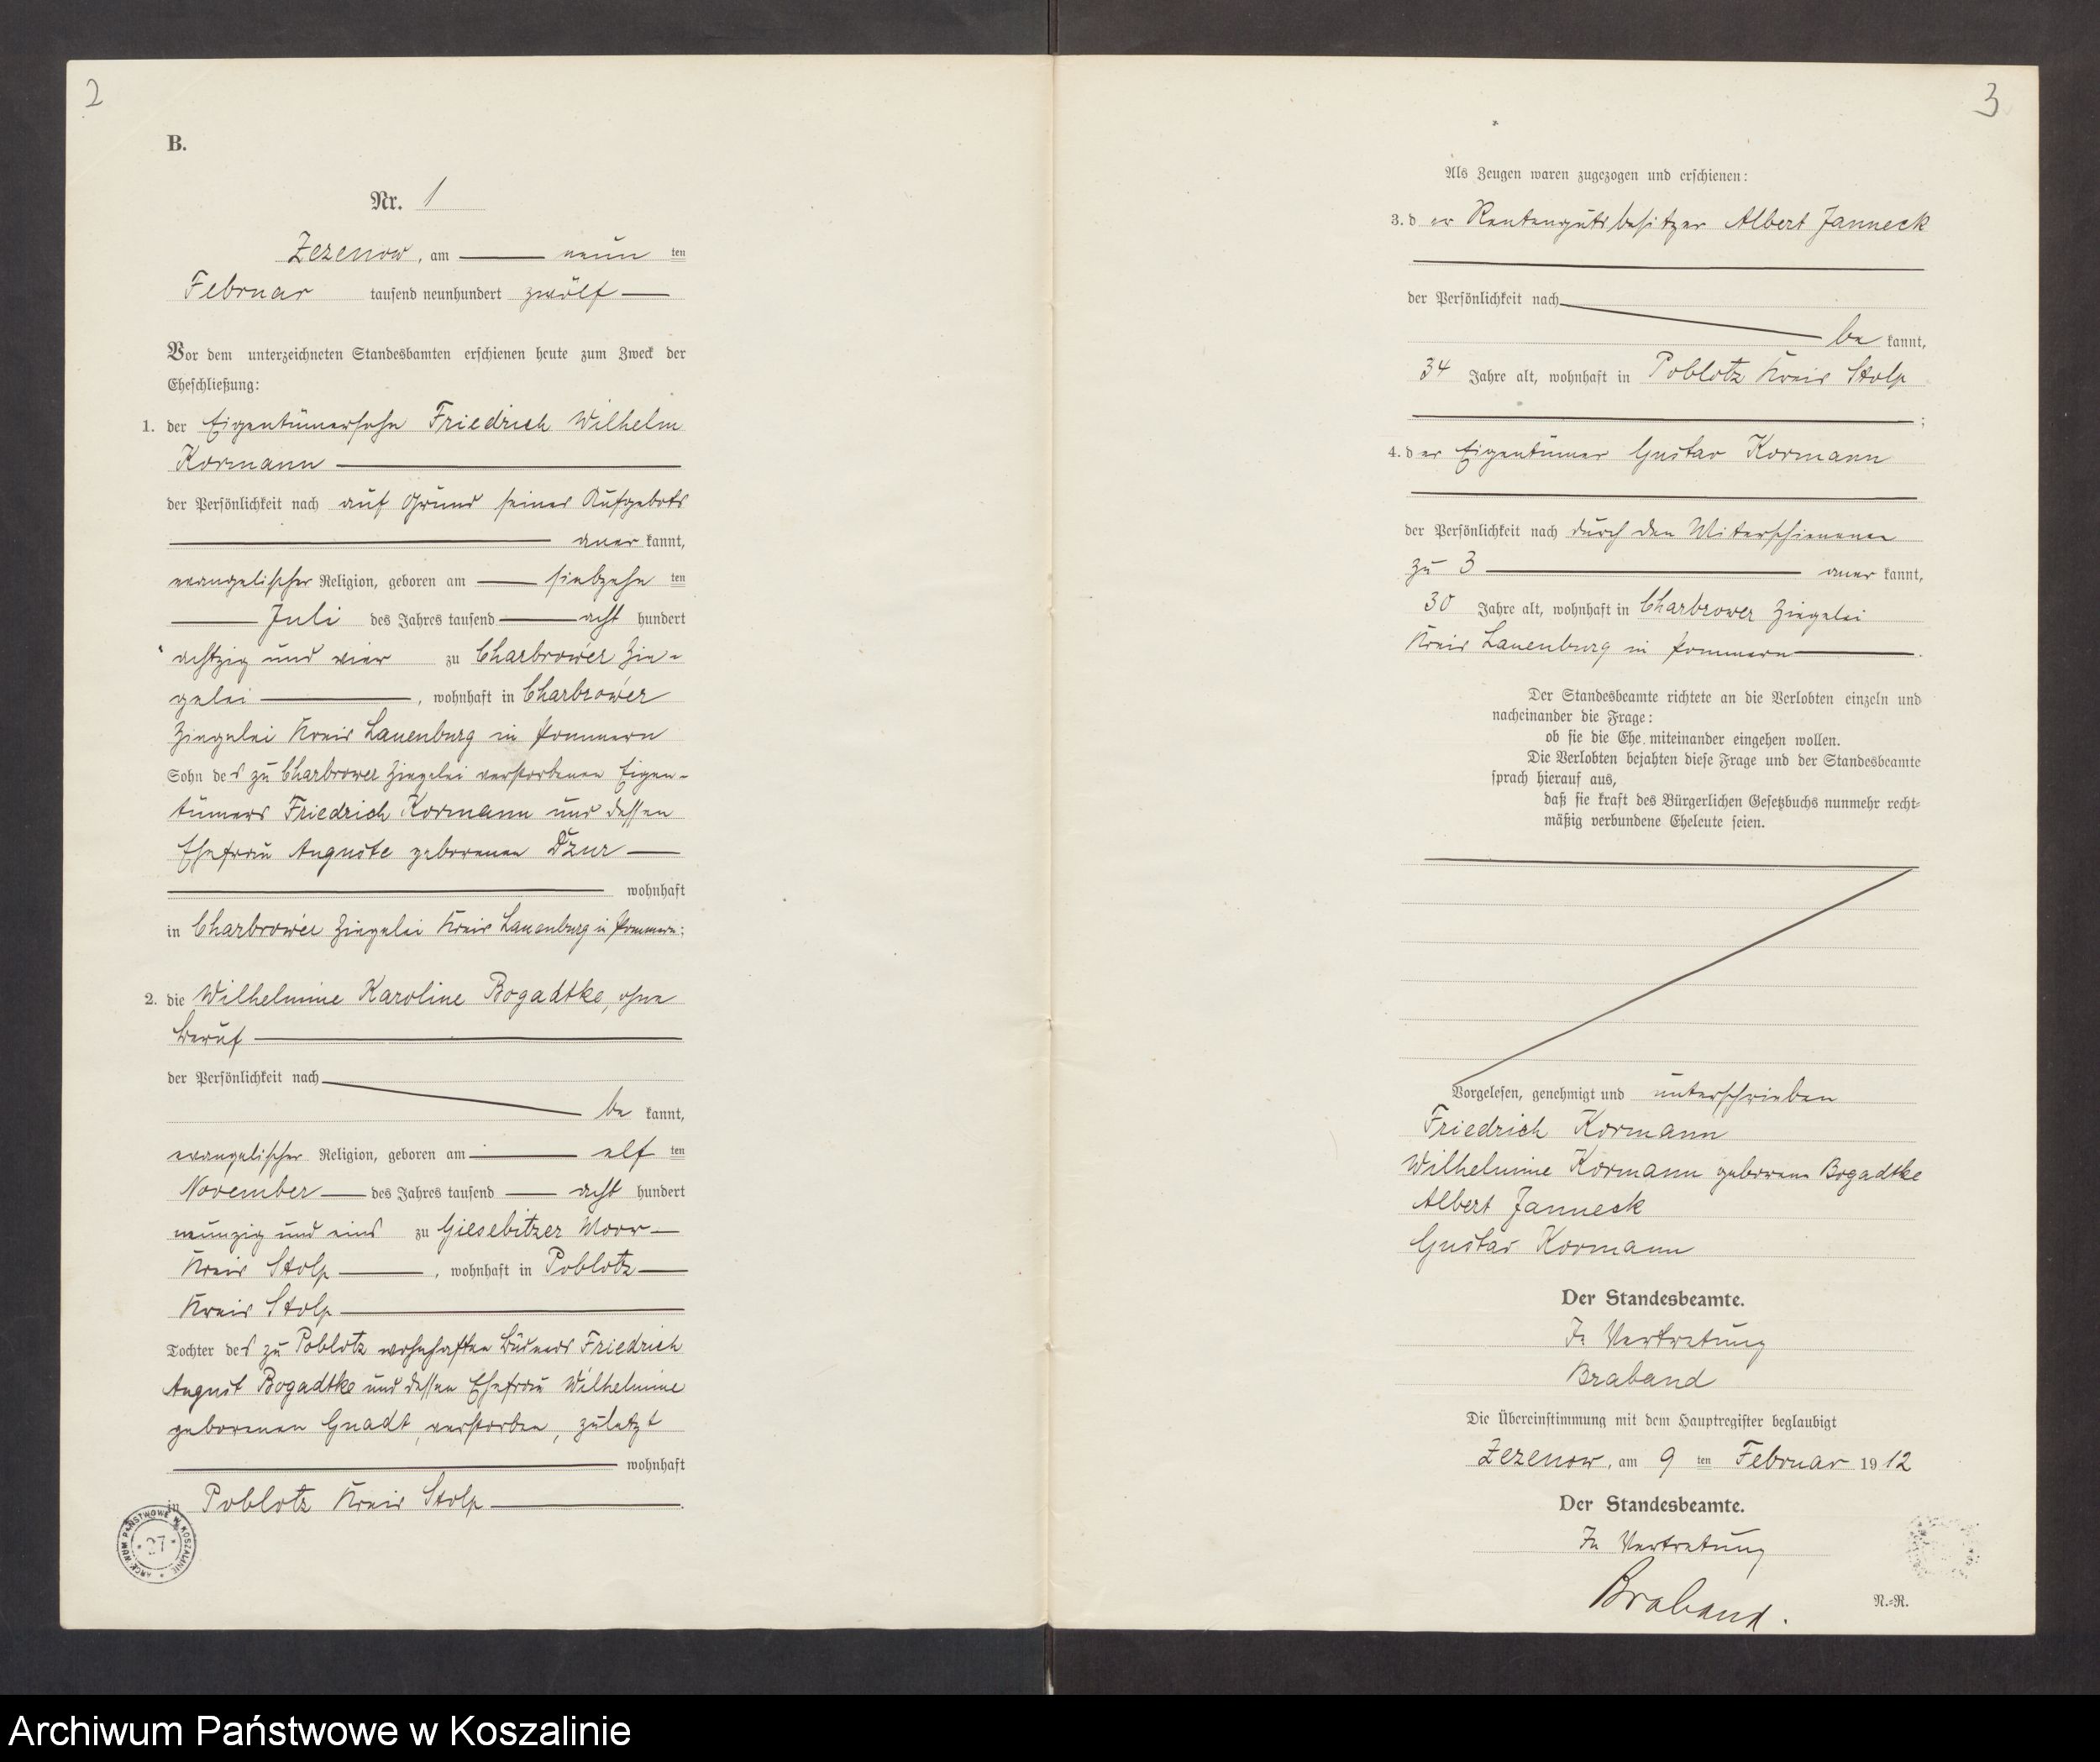 2
B.
Nr. 1
Zezenow, am neun ten
Februar tausend neunhundert zwölf
Vor dem unterzeichneten Standesbamten erschienen heute zum Zweck der
Eheschließung:
1. der Eigentümersohn Friedrich Wilhelm
Kormann
der Persönlichkeit nach auf Grund seines Aufgebots
aner kannt,
evangelischer Religion, geboren am siebzehn ten
Juli des Jahres tausend acht hundert
achtzig und vier zu Charbrower Zie-
gelei, wohnhaft in Charbrower
Ziegelei Kreis Lauenburg in Pommern
Sohn des zu Charbrower Ziegelei verstorbenen Eigen-
tümers Friedrich Kormann und dessen
Ehefrau Auguste geborenen Dzur
wohnhaft
in Charbrower Ziegelei Kreis Lauenburg in Pommern;
2. die Wilhelmine Karoline Bogadtke, ohne
Beruf
der Persönlichkeit nach
be kannt,
evangelischer Religion, geboren am elf ten
November des Jahres tausend acht hundert
neunzig und eins zu Giesebitzer Moor
Kreis Stolp, wohnhaft in Poblotz
Kreis Stolp
Tochter des zu Poblotz wohnhaften Büdners Friedrich
August Bogadtke und dessen Ehefrau Wilhelmine
geborenen Gnadt, verstorben, zuletzt
wohnhaft
in Poblotz Kreis Stolp.
ARCHIWUM PAŃSTWOWE W KOSZALINIE
27
3
Als Zeugen waren zugezogen und erschienen:
3. der Rentengutsbesitzer Albert Janneck
der Persönlichkeit nach
be kannt,
34 Jahre alt, wohnhaft in Poblotz Kreis Stolp
;
4. der Eigentümer Gustav Kormann
der Persönlichkeit nach durch den Miterschienenen
zu 3 aner kannt,
30 Jahre alt, wohnhaft in Charbrower Ziegelei
Kreis Lauenburg in Pommern.
Der Standesbeamte richtete an die Verlobten einzeln und
nacheinander die Frage:
ob sie die Ehe miteinander eingehen wollen.
Die Verlobten bejahten diese Frage und der Standesbeamte
sprach hierauf aus,
daß sie kraft des Bürgerlichen Gesetzbuchs nunmehr recht=
mäßig verbundene Eheleute seien.
Vorgelesen, genehmigt und unterschrieben
Friedrich Kormann
Wilhelmine Kormann geborene Bogadtke
Albert Janneck
Gustav Kormann
Der Standesbeamte.
In Vertretung
Braband
Die Übereinstimmung mit dem Hauptregister beglaubigt
Zezenow, am 9 ten Februar 1912
Der Standesbeamte.
In Vertretung
Braband.
N.=R.
Archiwum Państwowe w Koszalinie